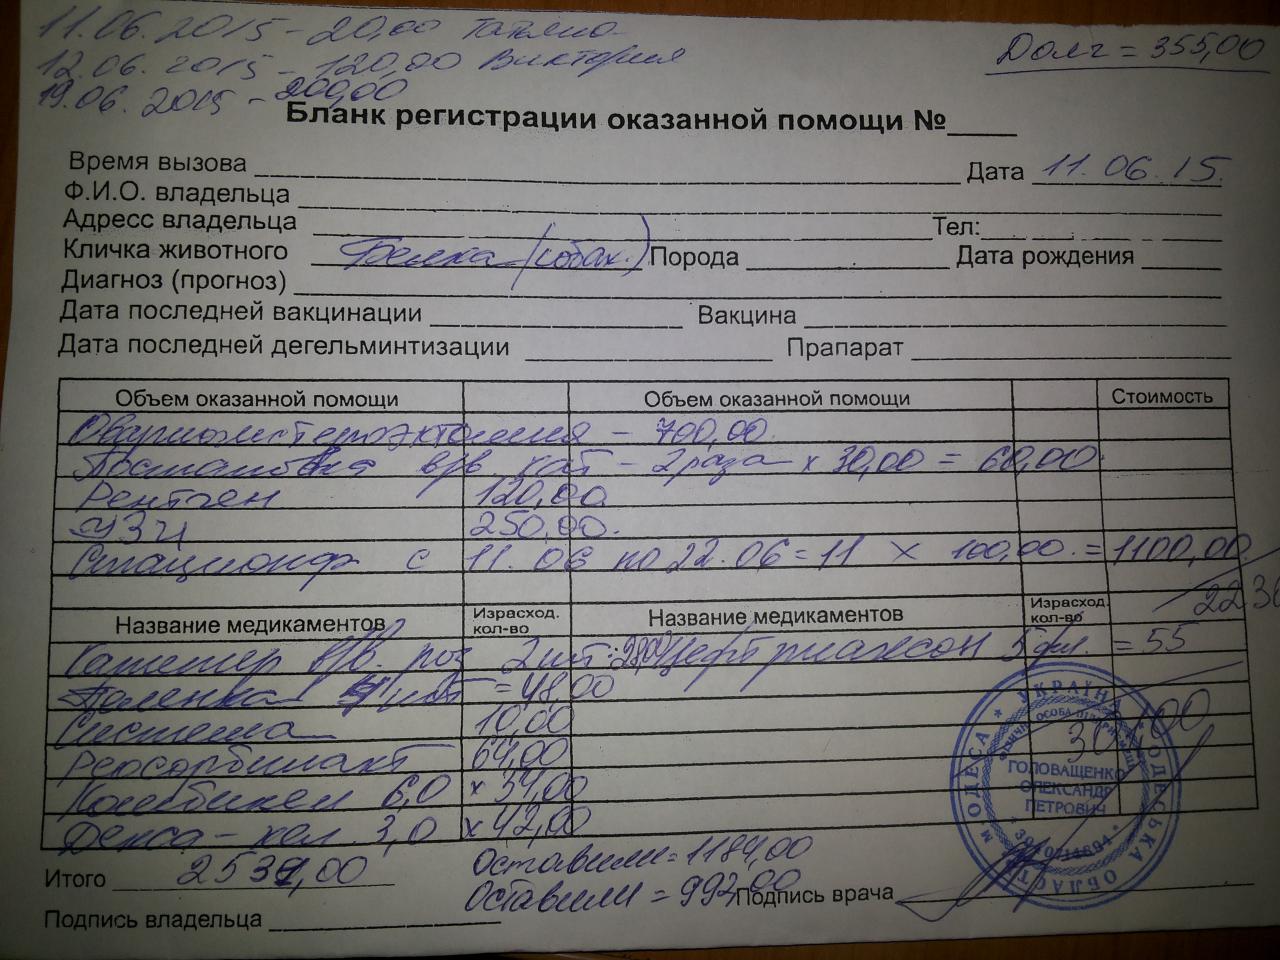 11.06.2015 - 20,00 Татьяна
12.06.2015 - 120,00 Виктория
19.06.2015 - 200,00
Долг = 355,00
Бланк регистрации оказанной помощи №____
Время вызова Дата 11.06.15.
Ф.И.О. владельца
Адресс владельца Тел:
Кличка животного Белка (собак.) Порода Дата рождения
Диагноз (прогноз)
Дата последней вакцинации Вакцина
Дата последней дегельминтизации Прапарат
Объем оказанной помощи Объем оказанной помощи Стоимость
Овариогистероэктомия - 700,00.
Постановка в/в. кат - 2 раза х 30,00 = 60,00
Рентген 120,00
УЗИ 250,00.
Стационар с 11.06 по 22.06 = 11 х 100,00. = 1100,00
2230
Название медикаментов Израсход. кол-во Название медикаментов Израсход. кол-во
Катетер в/в. роз 2 шт. Цефтриаксон 5 фл. = 55
Пеленка шт = 48,00
Система 10,00
Реосорбилакт 64,00
Комбикел 6,0 х 34,00
Декса-кел 3,0 х 42,00
УКРАЇНА * ОДЕСЬКА ОБЛАСТЬ М ОДЕСА *
ГОЛОВАЩЕНКО
ОЛЕКСАНДР
ПЕТРОВИЧ
Итого 2531,00
Оставили = 1184,00
Оставили = 992,00
Подпись врача
Подпись владельца